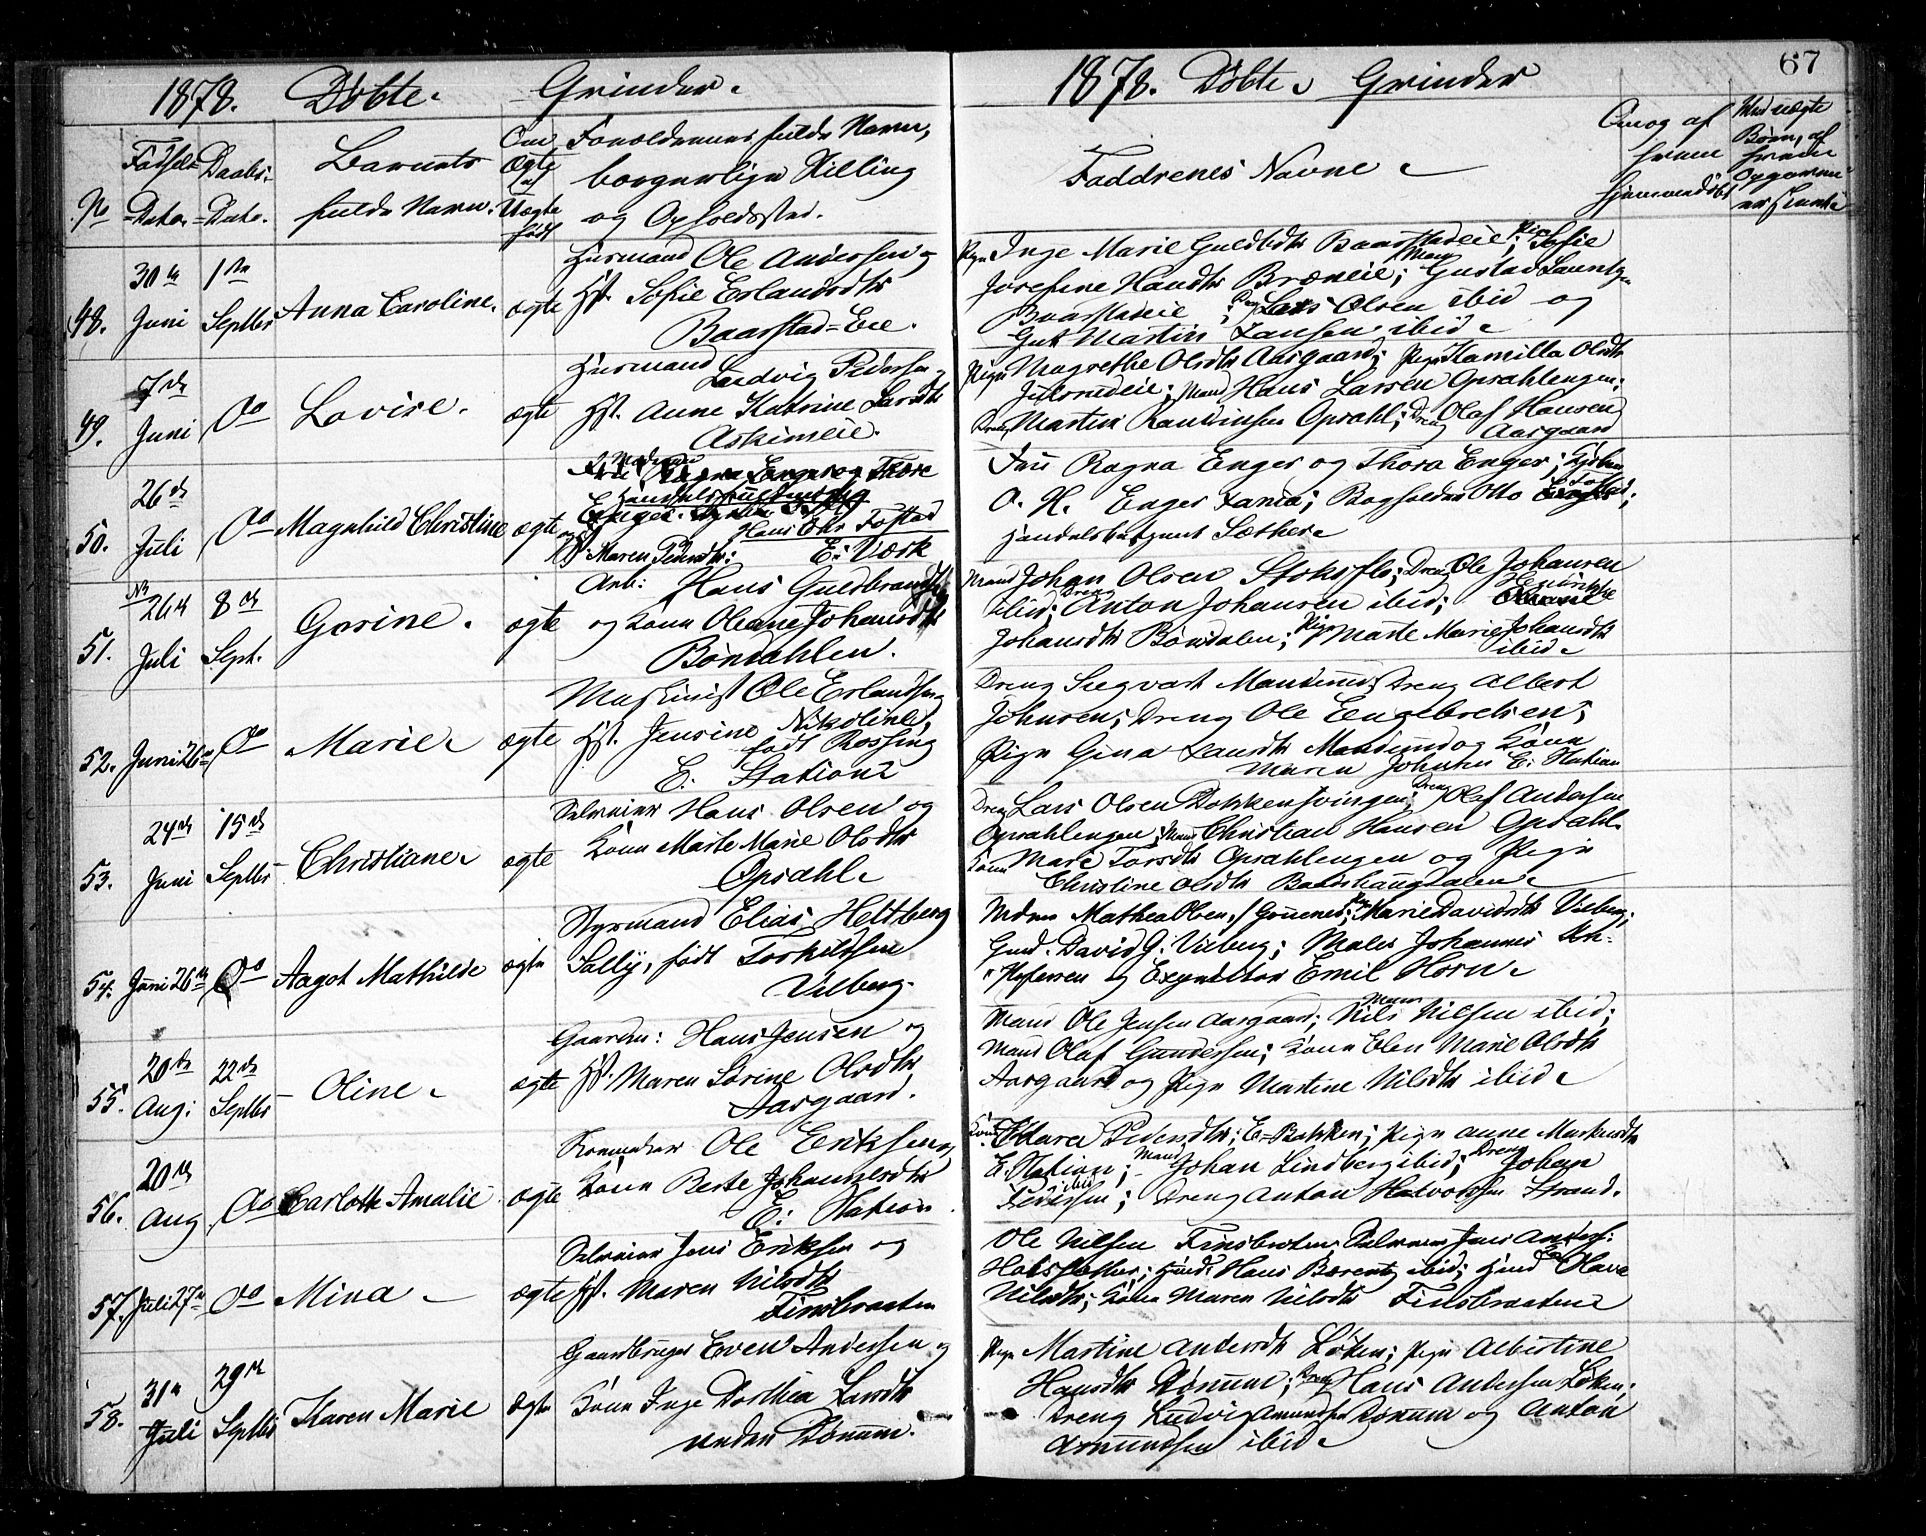 1878. Döbte. Grinder.
No
Födsels-Dato.
Daabs-Dato.
Barnets fulde Navn.
Om Ægte el. Uægte født
Forældrenes fulde Navn, borgerlige Stilling og Opholdssted.
48.
30te Juni
1ste Septbr
Anna Caroline.
ægte
Husmand Ole Andersen og
Hst. Sofie Erlandsdtr
Baarstad-Eie.
49.
7de Juni
Do
Lovise.
ægte
Husmand
Ludvig Pedersen
Hst. Anne Katrine Larsdtr
Askimeie.
50.
26de Juli
Do
Magnhild Christine
ægte
Hans Chr Fostad
og Hst. Maren Pedersdtr: E: Værk
51.
26de Juli
8de Sept.
Gorine.
ægte
Arb: Hans Guldbrandsen
og Kone Oleane Johansdtr
Böndahlen.
52.
Juni 26de
Do
Marie
ægte
Maskinist Ole Erlandsen og
Hst. Jensine Nikoline,
født Rossing
E. Station
53.
24de Juni
15de Septbr
Christiane
ægte
Selveier Hans Olsen og
Kone Marte Marie Olsdtr
Opsahl
54.
Juni 26de
Do
Aagot Mathilde
ægte
Styrmand Elias Heltberg
Sally, født Torkildsen
Vilberg.
55.
20de Aug:
22de Septbr
Oline
ægte
Gaardm: Hans Jensen og
Hst. Maren Sorine Olsdtr
Aasgaard.
56.
20de Aug
Do
Carlotte Amalie
ægte
Ole Eriksen og
Kone Berte Johannesdtr
E: Station
57.
Juli 27de
Do
Mina
ægte
Selveier Jens Eriksen og
Hst. Maren Nilsdtr
Finsbraaten
58.
31te Juli
29de Septbr
Karen Marie
ægte
Gaardbruger Even Andersen og
Kone Inge Dorthea Larsdtr
nedre Dönnum.
1878. Döbte. Grinder
67
Faddrenes Navne
Om og af hvem hjemmedöbt
Ved uægte Børn, af hvem Opgaven er skeet
Pige Inge Marie Guldbdtr Baarstadeie; Pige Sofie
Josefine Hansdtr Bræneie; Mand Gustav Laurits
Baarstadeie; Dreng Lars Olsen ibid og
Martin Jansen ibid
Pige Magrethe Olsdtr Aasgaard; Pige Kamilla Olsdtr
Julsrudeie; Mand Hans Larsen Opsahlengen;
Dreng Martin Opsahl; Dreng Olaf Hansen
Aasgaard
Fru Ragna Enger og Thora Enger;
O. H. Enger Bogholder Otto
Handelsbetjent Sæther
Mand Johan Olsen Stoksflo; Dreng Ole Johansen
ibid; Dreng Anton Johansen ibid; Henrikke
Johansdtr Böndalen; Pige Marte Marie Johansdtr
ibid
Dreng Siegvart Dreng Albert
Johnsen; Dreng Ole Engebretsen;
Pige Gina Larsdtr og Kone
Maren E: Station
Dreng Lars Olsen Dokkensvingen; Dreng Olaf Andersen
Opsahlengen; Mand Christian Hansen Opsahl
Kone Mari Torsdtr Opsahlengen og Pige
Christine Olsdtr
Madm Mathea Olsen, Pige Marie Davidsdtr Vilberg;
Gmd. David G. Vilberg; Maler Johannes
og Expeditør Emil Horn
Mand Ole Jensen Aasgaard; Mand Nils Nilsen ibid;
Mand Olaf Gundersen; Kone Elen Marie Olsdtr
Aasgaard og Pige Martine Nilsdtr ibid
Kone Maren Pedersdtr; E-Bakken; Pige Anne Markusdtr
E. Station; Mand Johan Lindberg ibid; Dreng Johan
Iversen ibid; Dreng Anton Halvorsen Strand.
Ole Nilsen Finsbraten Selveier Jens Anders:
Holsæther; Husmd. Hans Berentz ibid; Olave
Nilsdtr; Kone Maren Nilsdtr Finsbraaten
Pige Martine Andersdtr Löken; Pige Albertine
Hansdtr Dönnum; Dreng Hans Andersen Löken;
Dreng Ludvig Amundsen Dönnum og Anton
Asmundsen ibid